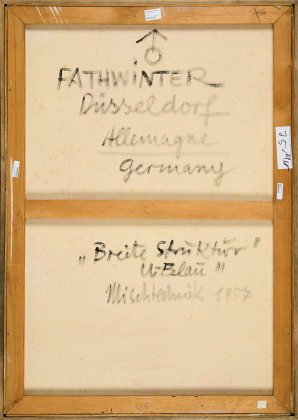 FATHWINTER
Düsseldorf
Allemagne
Germany
„Breite Struktur"
U-Blau"
Mischtechnik 1957